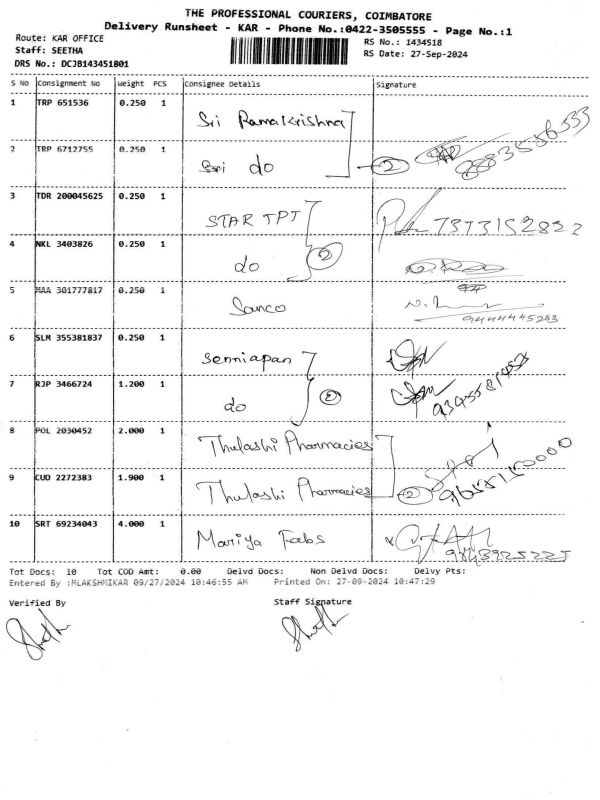 THE PROFESSIONAL COURIERS, COIMBATORE
Delivery Runsheet - KAR - Phone No.:0422-3505555 - Page No.:1
Route: KAR OFFICE
Staff: SEETHA
DRS No.: DCJB143451801
RS No.: 1434518
RS Date: 27-Sep-2024
S No Consignment No Weight PCS Consignee Details Signature
1 TRP 651536 0.250 1 Sri Ramakrishna
2 TRP 6712755 0.250 1 Sri do 2
3 TDR 200045625 0.250 1 STAR TPT 7373152822
4 NKL 3403826 0.250 1 do 2
5 MAA 301777817 0.250 1 Sanco 9444445283
6 SLM 355381837 0.250 1 Senniapan
7 RJP 3466724 1.200 1 do 2
8 POL 2030452 2.000 1 Thulashi Pharmacies
9 CUD 2272383 1.900 1 Thulashi Pharmacies 2 9655150000
10 SRT 69234043 4.000 1 Mariya Fabs
Tot Docs: 10 Tot COD Amt: 0.00 Delvd Docs: Non Delvd Docs: Delvy Pts:
Entered By :MLAKSHMIKAR 09/27/2024 10:46:55 AM Printed On: 27-09-2024 10:47:29
Verified By Staff Signature